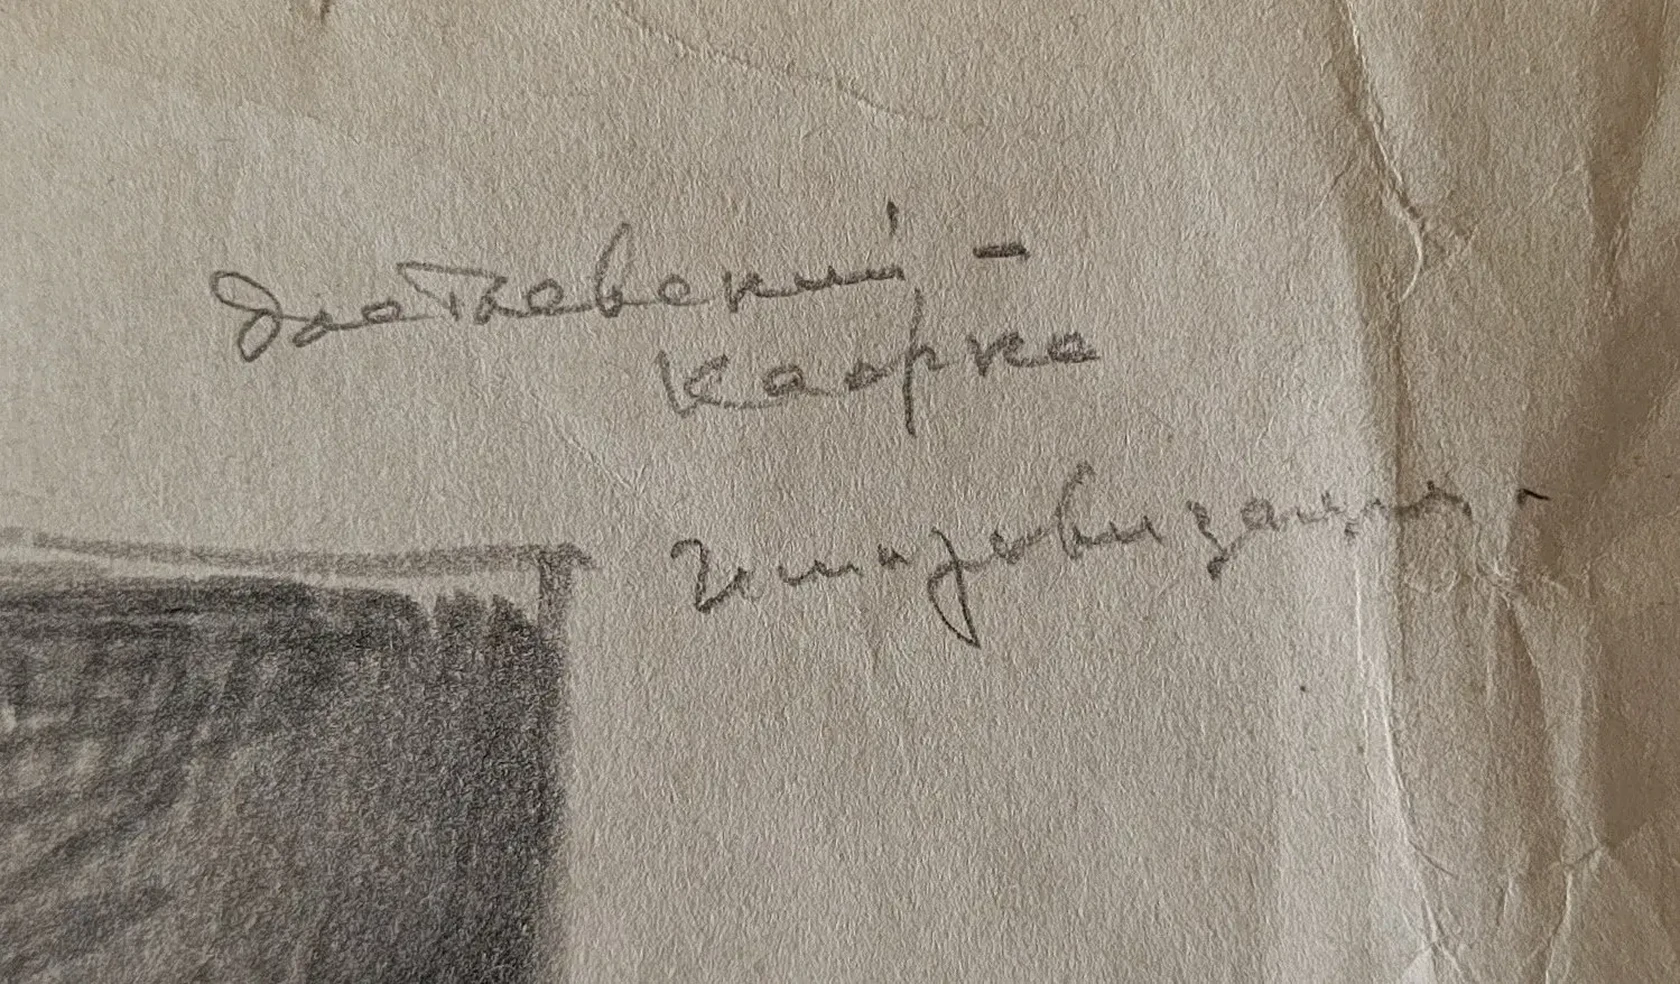 Достоевский –
Импровизация –